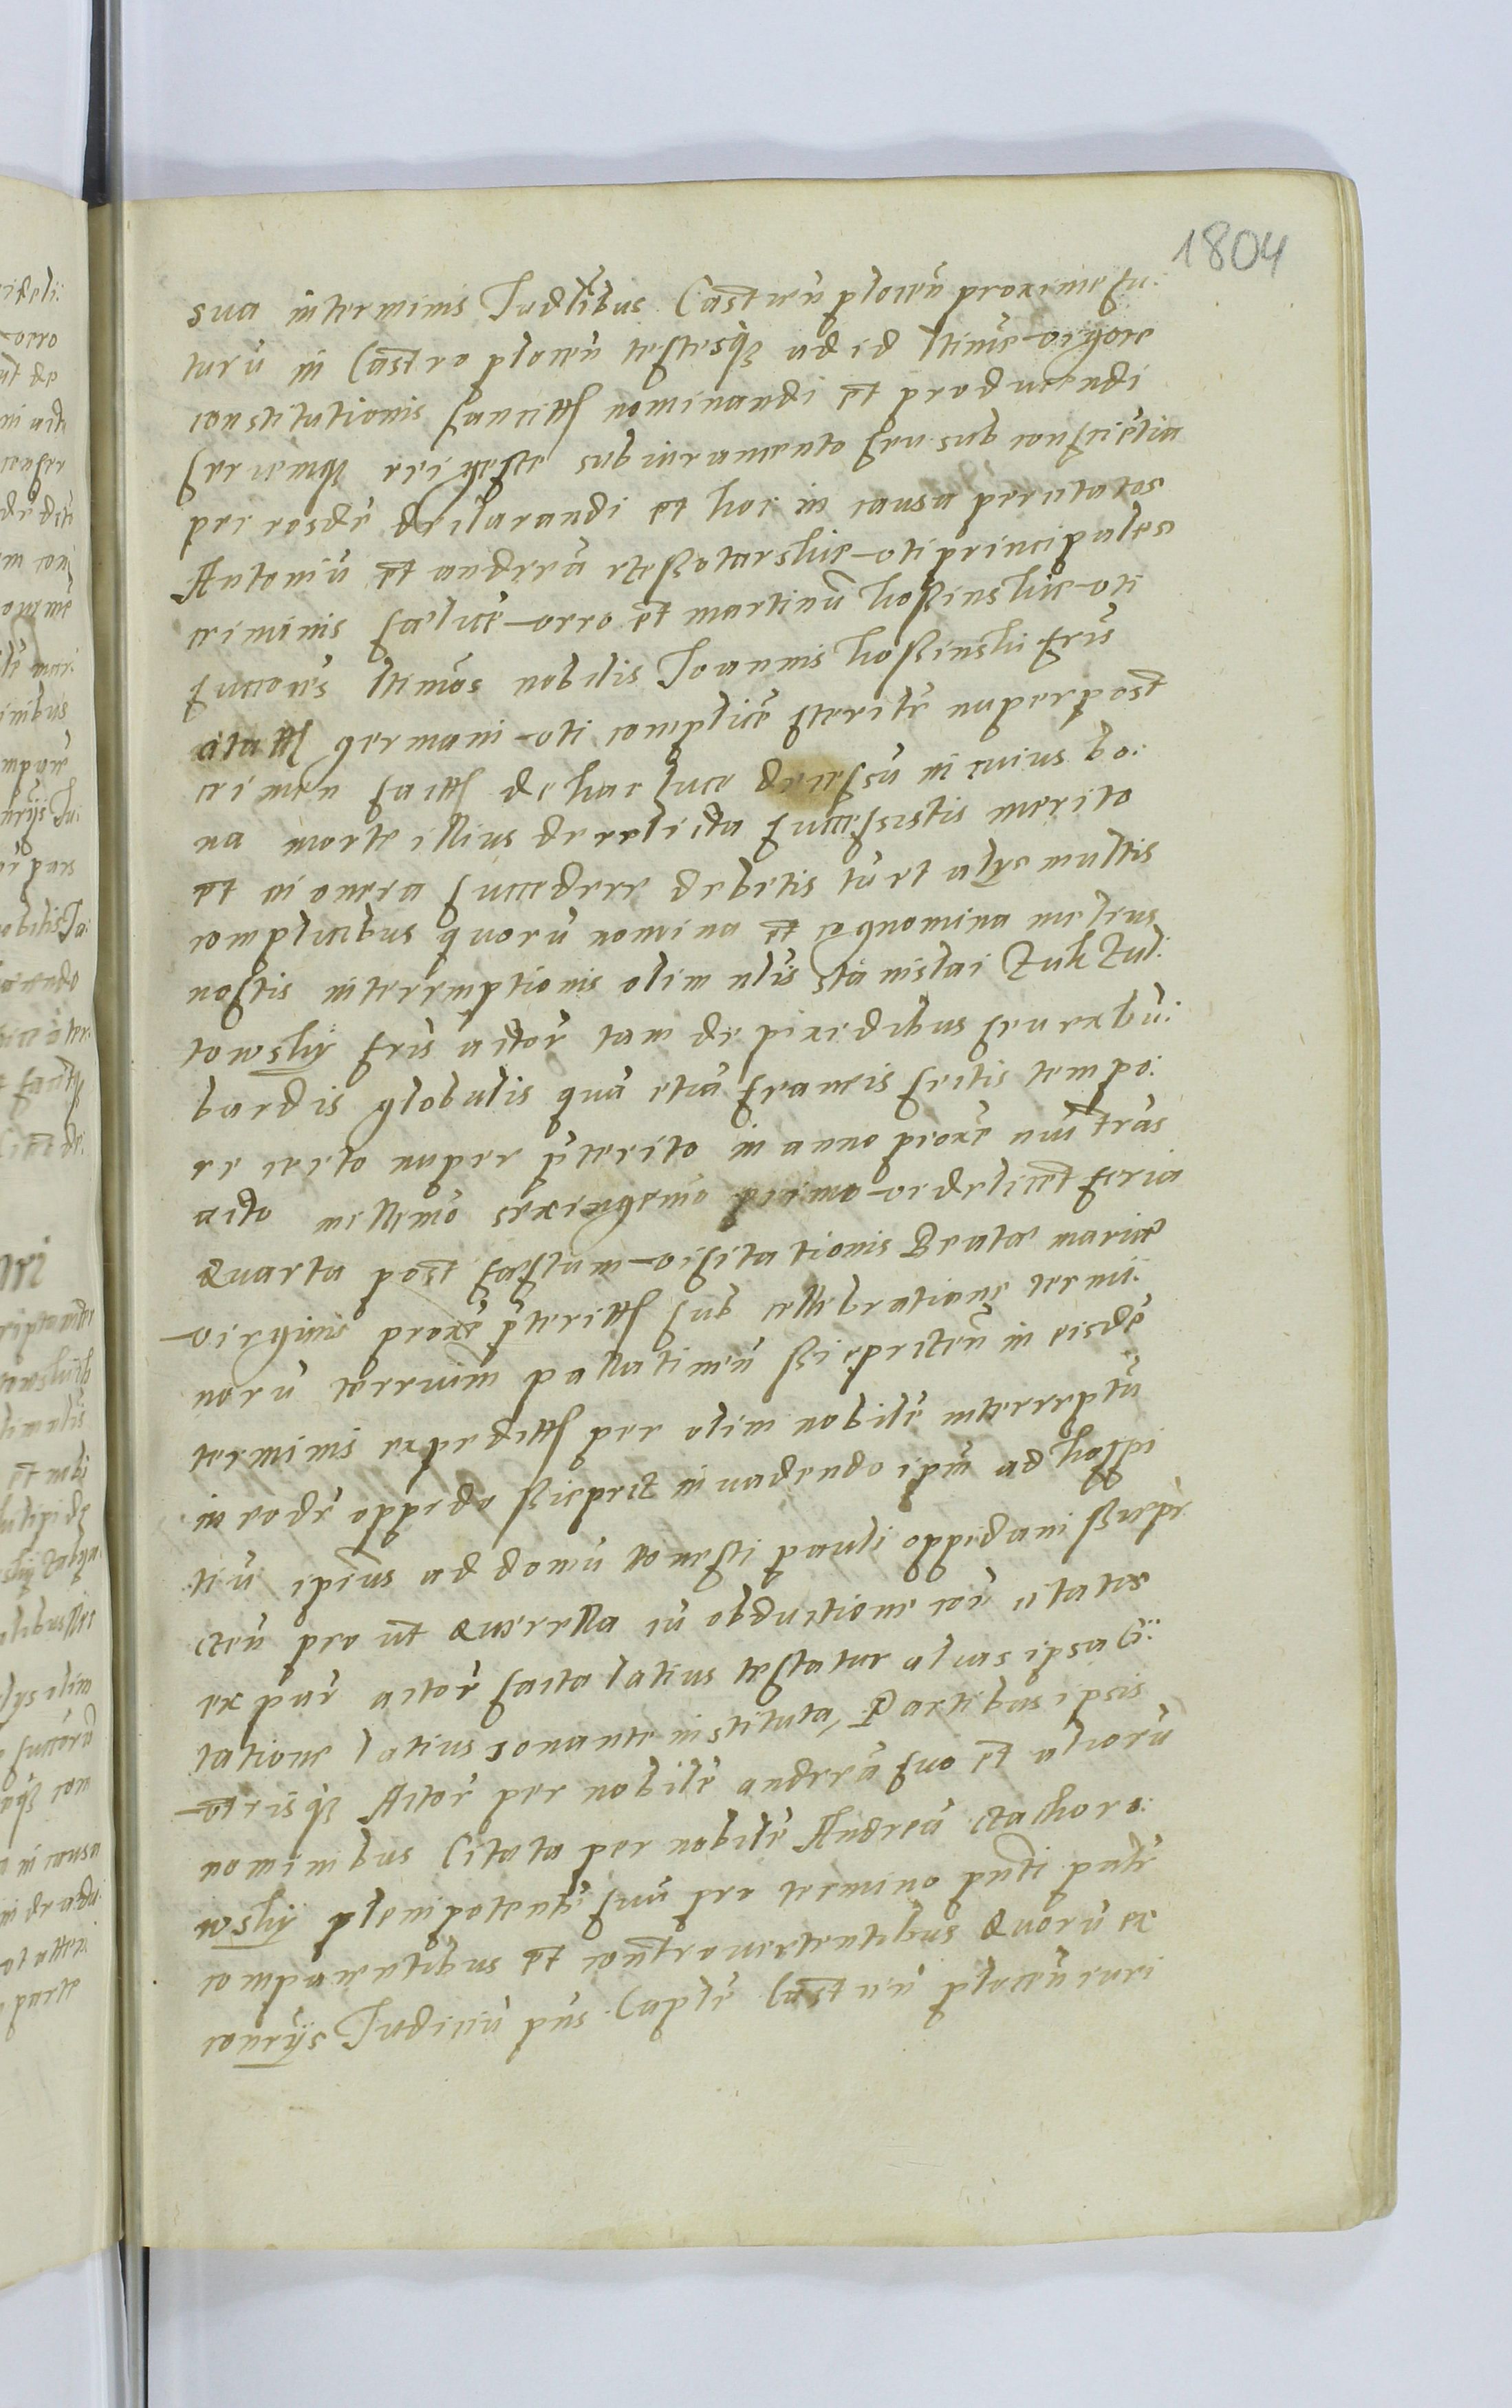 1804
sua in terminis Judlibus Castren̄ plocen̄ proxime fu:
turū in Castro plocen̄ testesq̨ ad id ltime vigore
constitutionis sancitt nominandi et producendi
seriemq̨ rei geste sub iuramento seu sub consciētia
per eosdē declarandi et hoc in causa per citatos
Antoniū et andreā vti principales
criminis et martinū koßinskie vti
succores ltimos nobilis Joannis koßinski fris
citatt germani vti complicē steritē nuper post
crimen factt de hac luce decessū in cuius bo:
na morte illius derelicta successistis merito
et in onera succedere debetis tū et alys multis
complicibus quorū nomina et cognomina melius
nostis interemptionis olim nlis stanislai Zuk Zul:
towsky fris actor tam de pixidibus seu exbū:
bardis globulis quā etiā frameis fcitis tempo:
re certo nuper p̄terito in anno proxē nui trās
acto millimo sexingemo primo videlicet feria
quarta post fæstum visitationis Beatæ mariæ
virginis proxē p̄teritt sub cellebratione termi:
norū terrium pallatinen̄ Sieprcten̄ in eisdē
terminis expeditt per olim nobilē intereeptū
in eodē oppido Sieprcz inuadendo ipm̄ ad hospi
tiū ipius ad domū honesti pauli oppidani Siepr
cten̄ pro ut querella cū obductione coi citatos
ex par actor facta latius testatur aluas ipsa Ci:
tatione latius sonante instituta, Partibus ipsis
vtrisq̨ Actor per nobilē andreā suo et aliorū
nominibus Citata per nobilē Andreā
wsky plenipotentē suū pro termino pn̄ti putē
comparentibus et controuertentibus Quorū ex
conryis Judiciū pn̄s Caplē Castren̄ plocen̄ curi